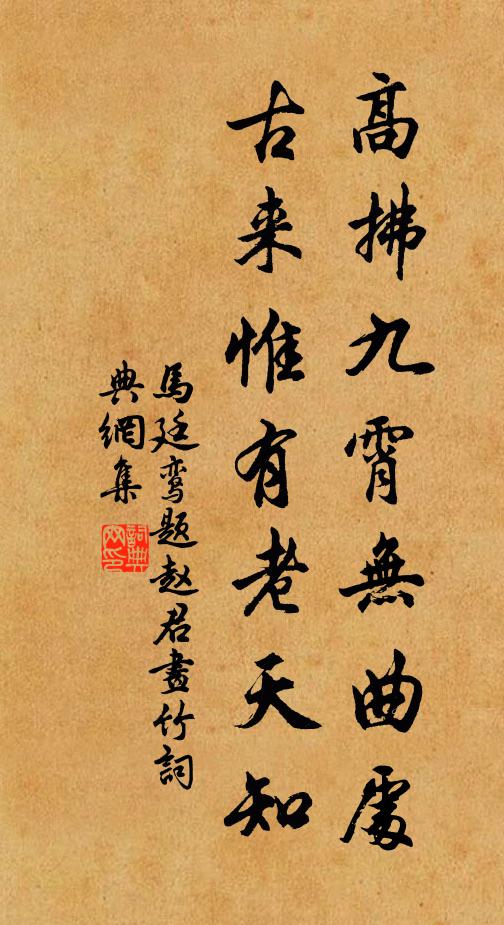 高拂九霄無曲處
古来惟有老天知
馬廷鸞題赵君畫竹詞
典網集
詞典網印